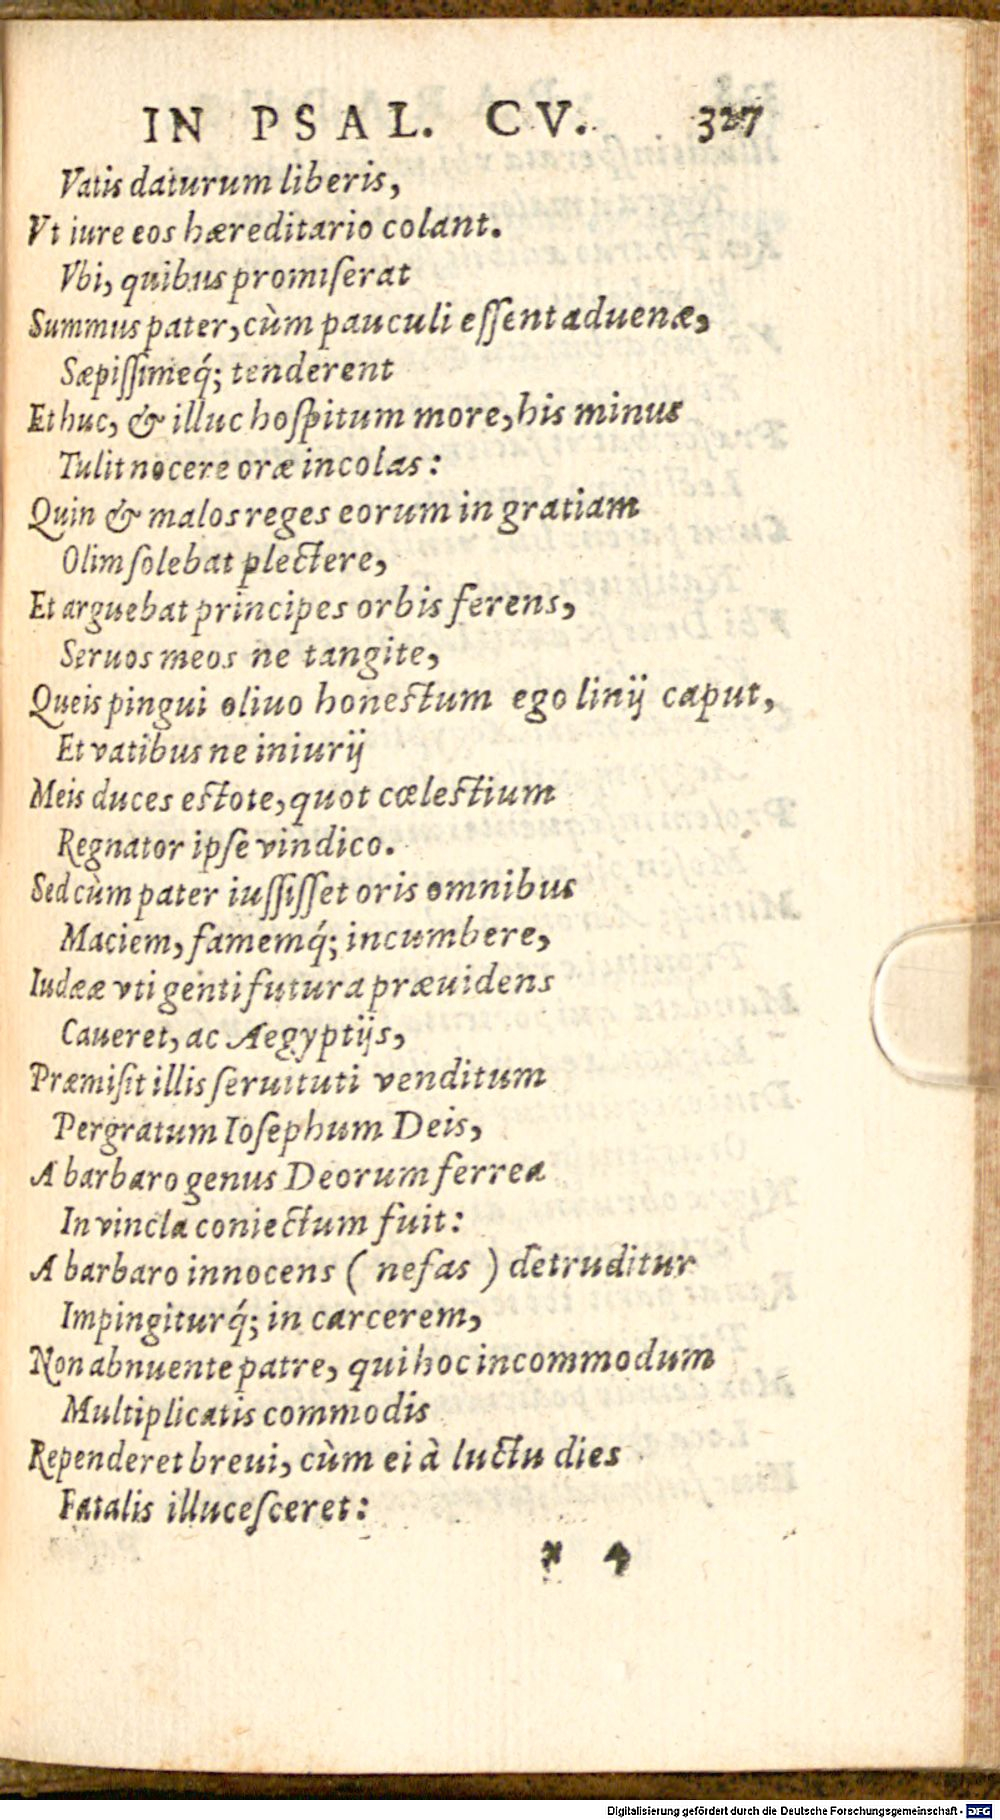 IN PSAL. CV. 327
Vatis daturum liberis,
Vt iure eos hæreditario colant.
Vbi, quibus promiſerat
Summus pater, cùm pauculi eſſent aduenæ,
Sæpiſſimeq́; tenderent
Et huc, & illuc hoſpitum more, his minus
Tulit nocere oræ incolas:
Quin & malos reges eorum in gratiam
Olim ſolebat plectere,
Et arguebat principes orbis ferens,
Seruos meos ne tangite,
Queis pingui oliuo honestum ego linij caput,
Et vatibus ne iniurij
Meis duces estote, quot cœlestium
Regnator ipſe vindico.
Sed cùm pater iuſſiſſet oris omnibus
Maciem, famemq́; incumbere,
Iudææ vti genti futura præuidens
Caueret, ac Aegyptijs,
Præmiſit illis ſeruituti venditum
Pergratum Ioſephum Deis,
A barbaro genus Deorum ferrea
In vincla coniectum fuit:
A barbaro innocens ( nefas ) detruditur
Impingiturq́; in carcerem,
Non abnuente patre, qui hoc incommodum
Multiplicatis commodis
Rependeret breui, cùm ei à luctu dies
Fatalis illuceſceret:
* 4
Digitalisierung gefördert durch die Deutsche Forschungsgemeinschaft - DFG